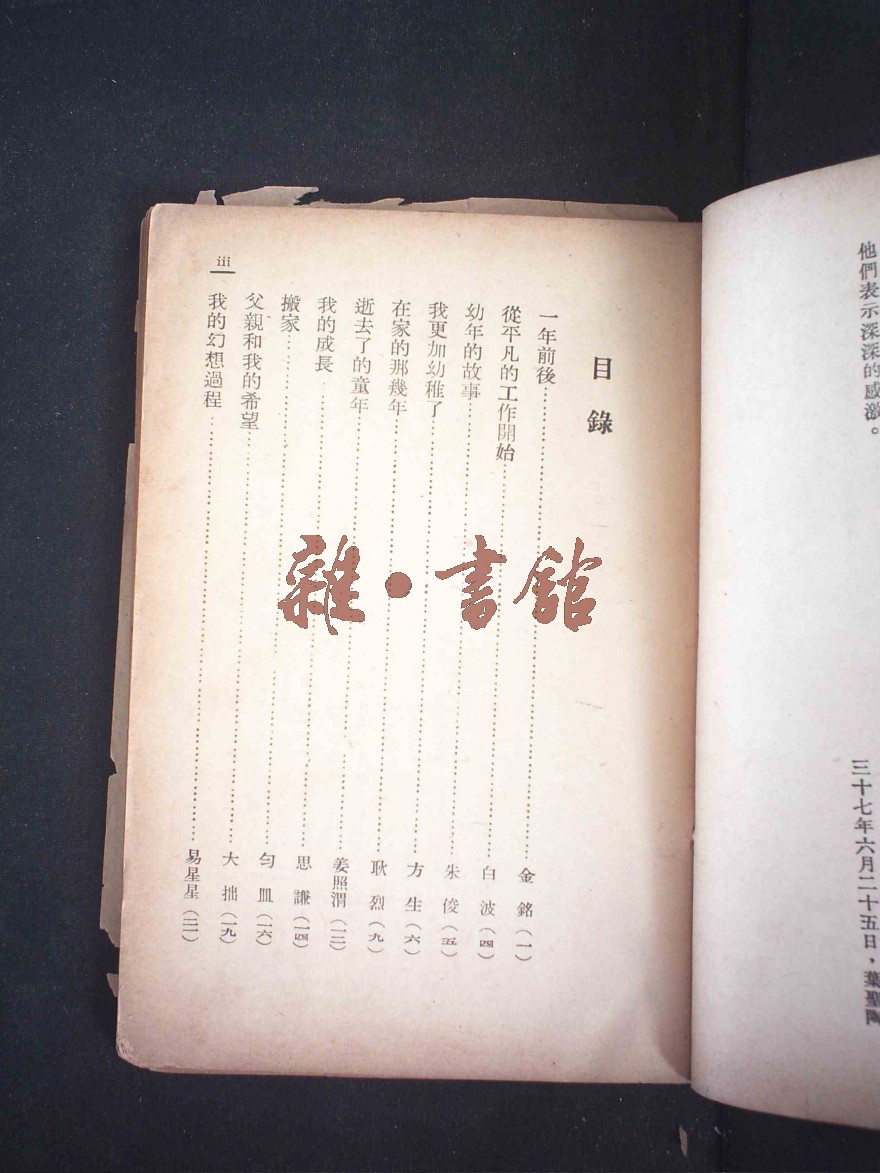 他們表示深深的感激。
三十七年六月二十五日，葉聖陶
目錄
一年前後 金銘（一）
從平凡的工作開始 白波（四）
幼年的故事 朱俊（五）
我更加幼稚了 方生（六）
在家的那幾年 耿烈（九）
逝去了的童年 姜照渭（一二）
我的成長 思謙（一四）
搬家 勻皿（一六）
父親和我的希望 大拙（一九）
我的幻想過程 易星星（二一）
iii
雜·書館